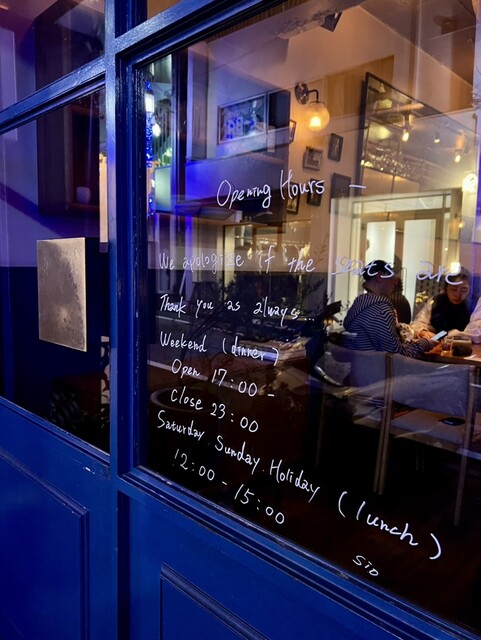 Opening Hours -
We apologise if the seats are
Thank you as always...
Weekend (dinner)
Open 17:00 -
Close 23:00
Saturday Sunday Holiday (lunch)
12:00 - 15:00
sio